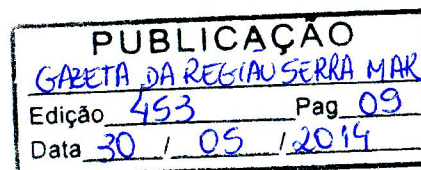 PUBLICAÇÃO
GAZETA DA REGIÃO SERRA MAR
Edição 453 Pag 09
Data 30 / 05 / 2014